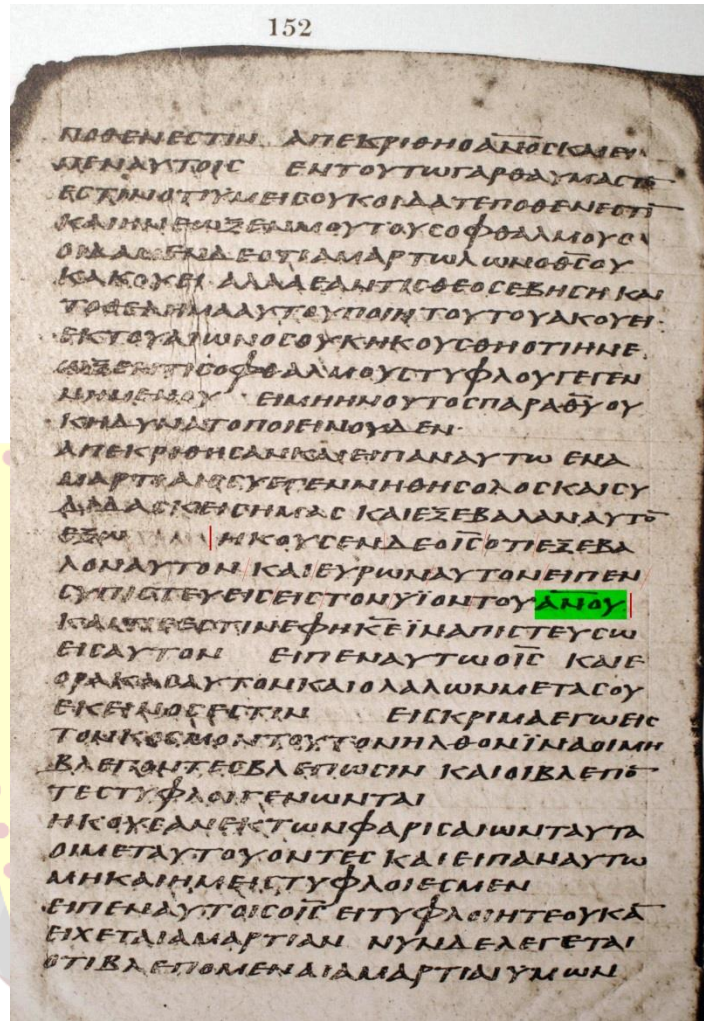 152
ΠΟΘΕΝΕCΤΙΝ ΑΠΕΚΡΙΘΗΟΑ̅Ν̅Ο̅C̅ΚΑΙΕΙ
ΠΕΝΑΥΤΟΙC ΕΝΤΟΥΤΩΓΑΡΘΑΥΜΑCΤΟ̅
ΕCΤΙΝΟΤΙΥΜΕΙCΟΥΚΟΙΔΑΤΕΠΟΘΕΝΕCΤΙ̅
ΚΑΙΗΝΕΩΞΕΝΜΟΥΤΟΥCΟΦΘΑΛΜΟΥC
ΟΙΔΑΜΕΝΔΕΟΤΙΑΜΑΡΤΩΛΩΝΟΘ̅C̅ΟΥ
ΚΑΚΟΥΕΙ ΑΛΛΑΕΑΝΤΙCΘΕΟCΕΒΗCΗ ΚΑΙ
ΤΟΘΕΛΗΜΑΑΥΤΟΥΠΟΙΗ ΤΟΥΤΟΥΑΚΟΥΕΙ·
ΕΚΤΟΥΑΙΩΝΟCΟΥΚΗΚΟΥCΘΗΟΤΙΗΝΕ
ΩΞΕΝΤΙCΟΦΘΑΛΜΟΥCΤΥΦΛΟΥΓΕΓΕΝ
ΝΗΜΕΝΟΥ ΕΙΜΗΗΝΟΥΤΟCΠΑΡΑΘ̅Υ̅ΟΥ
ΚΗΔΥΝΑΤΟΠΟΙΕΙΝΟΥΔΕΝ·
ΑΠΕΚΡΙΘΗCΑΝΚΑΙΕΙΠΑΝΑΥΤΩ ΕΝΑ
ΜΑΡΤΙΑΙCCΥΕΓΕΝΝΗΘΗCΟΛΟCΚΑΙCΥ
ΔΙΔΑCΚΕΙCΗΜΑC ΚΑΙΕΞΕΒΑΛΑΝΑΥΤΟ̅
ΕΞΩ ΗΚΟΥCΕΝΔΕΟΙ̅C̅ΟΤΙΕΞΕΒΑ
ΛΟΝΑΥΤΟΝ ΚΑΙΕΥΡΩΝΑΥΤΟΝΕΙΠΕΝ
CΥΠΙCΤΕΥΕΙCΕΙCΤΟΝΥΪΟΝΤΟΥΑ̅Ν̅Ο̅Υ̅
ΚΑΙΤΙCΕCΤΙΝΕΦΗΚ̅Ε̅ΪΝΑΠΙCΤΕΥCΩ
ΕΙCΑΥΤΟΝ ΕΙΠΕΝΑΥΤΩΟΙ̅C̅ ΚΑΙΕ
ΟΡΑΚΑCΑΥΤΟΝΚΑΙΟΛΑΛΩΝΜΕΤΑCΟΥ
ΕΚΕΙΝΟCΕCΤΙΝ ΕΙCΚΡΙΜΑΕΓΩΕΙC
ΤΟΝΚΟCΜΟΝΤΟΥΤΟΝΗΛΘΟΝΪΝΑΟΙΜΗ
ΒΛΕΠΟΝΤΕCΒΛΕΠΩCΙΝ ΚΑΙΟΙΒΛΕΠΟ̅
ΤΕCΤΥΦΛΟΙΓΕΝΩΝΤΑΙ
ΗΚΟΥCΑΝΕΚΤΩΝΦΑΡΙCΑΙΩΝΤΑΥΤΑ
ΟΙΜΕΤΑΥΤΟΥΟΝΤΕC ΚΑΙΕΙΠΑΝΑΥΤΩ
ΜΗΚΑΙΗΜΕΙCΤΥΦΛΟΙΕCΜΕΝ
ΕΙΠΕΝΑΥΤΟΙCΟΙ̅C̅ ΕΙΤΥΦΛΟΙΗΤΕΟΥΚΑ̅
ΕΙΧΕΤΑΙΑΜΑΡΤΙΑΝ ΝΥΝΔΕΛΕΓΕΤΑΙ
ΟΤΙΒΛΕΠΟΜΕΝΑΙΑΜΑΡΤΙΑΙΥΜΩΝ